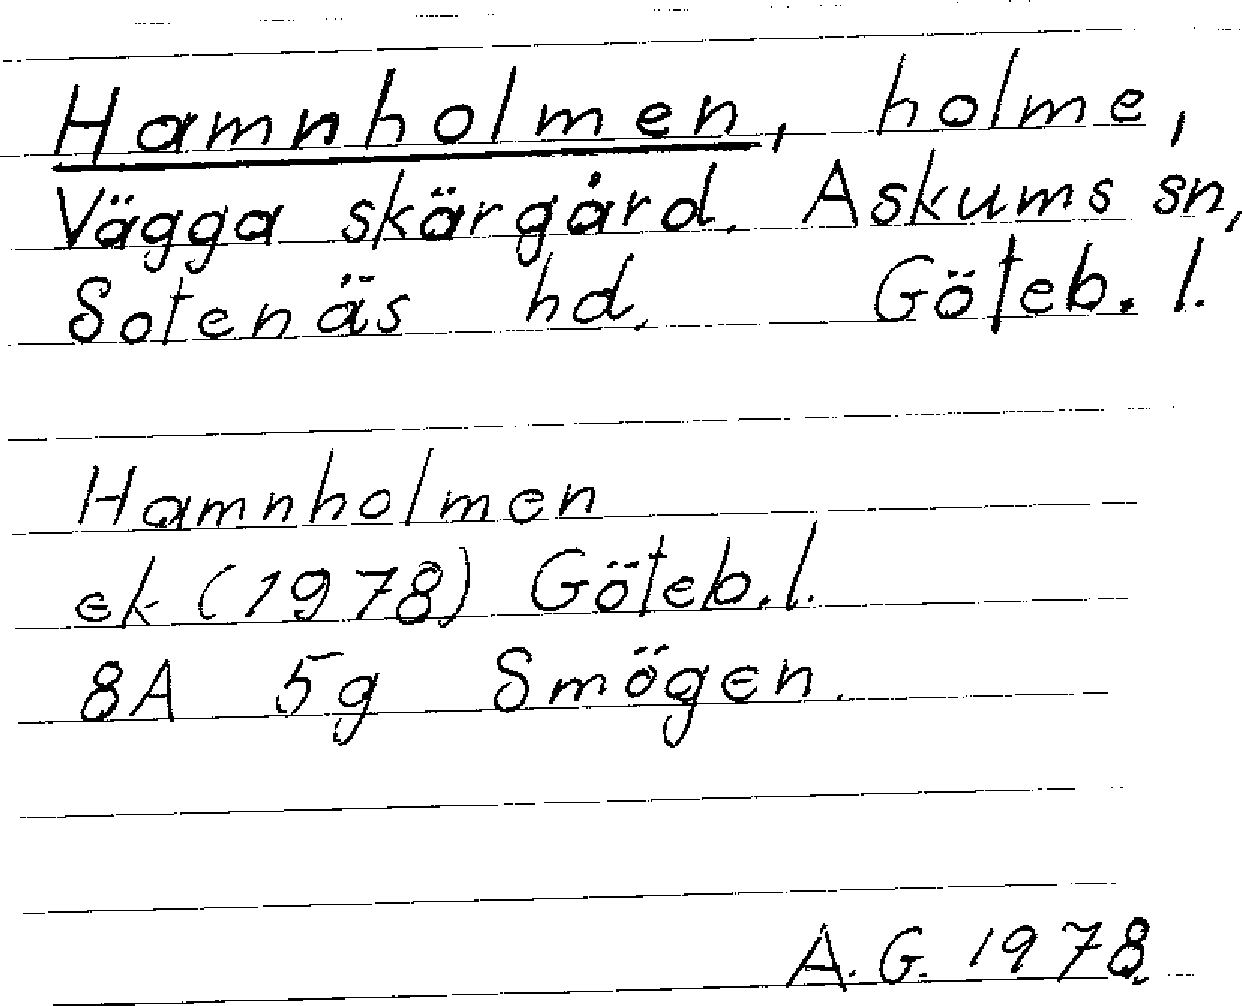 Hamnholmen, holme,
Vägga skärgård, Askums sn,
Sotenäs hd, Göteb. l.
Hamnholmen
ek (1978) Göteb. l.
8A 5g Smögen.
A. G. 1978.